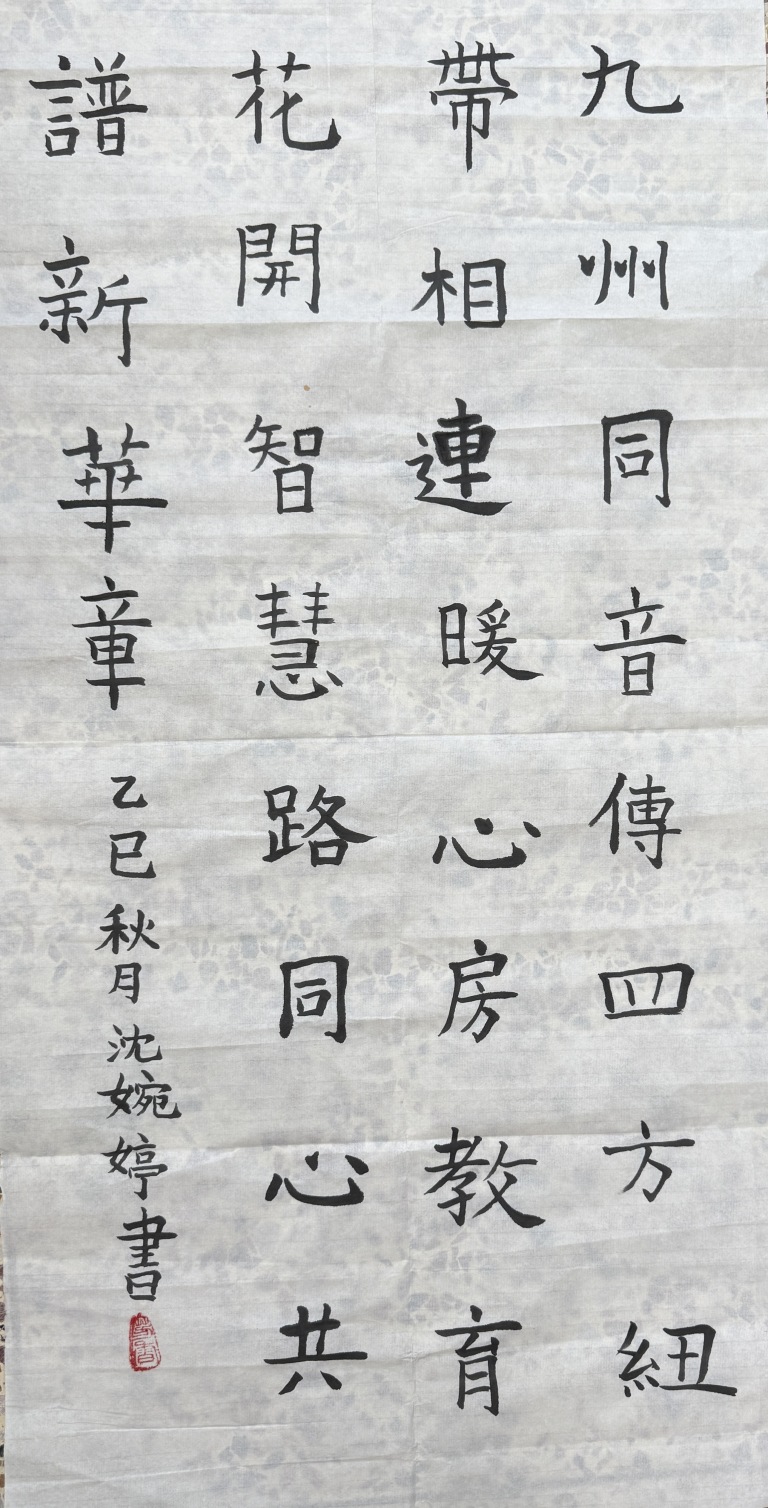 九州同音傳四方紐
帶相連暖心房教育
花開智慧路同心共
譜新華章
乙巳秋月沈婉婷書